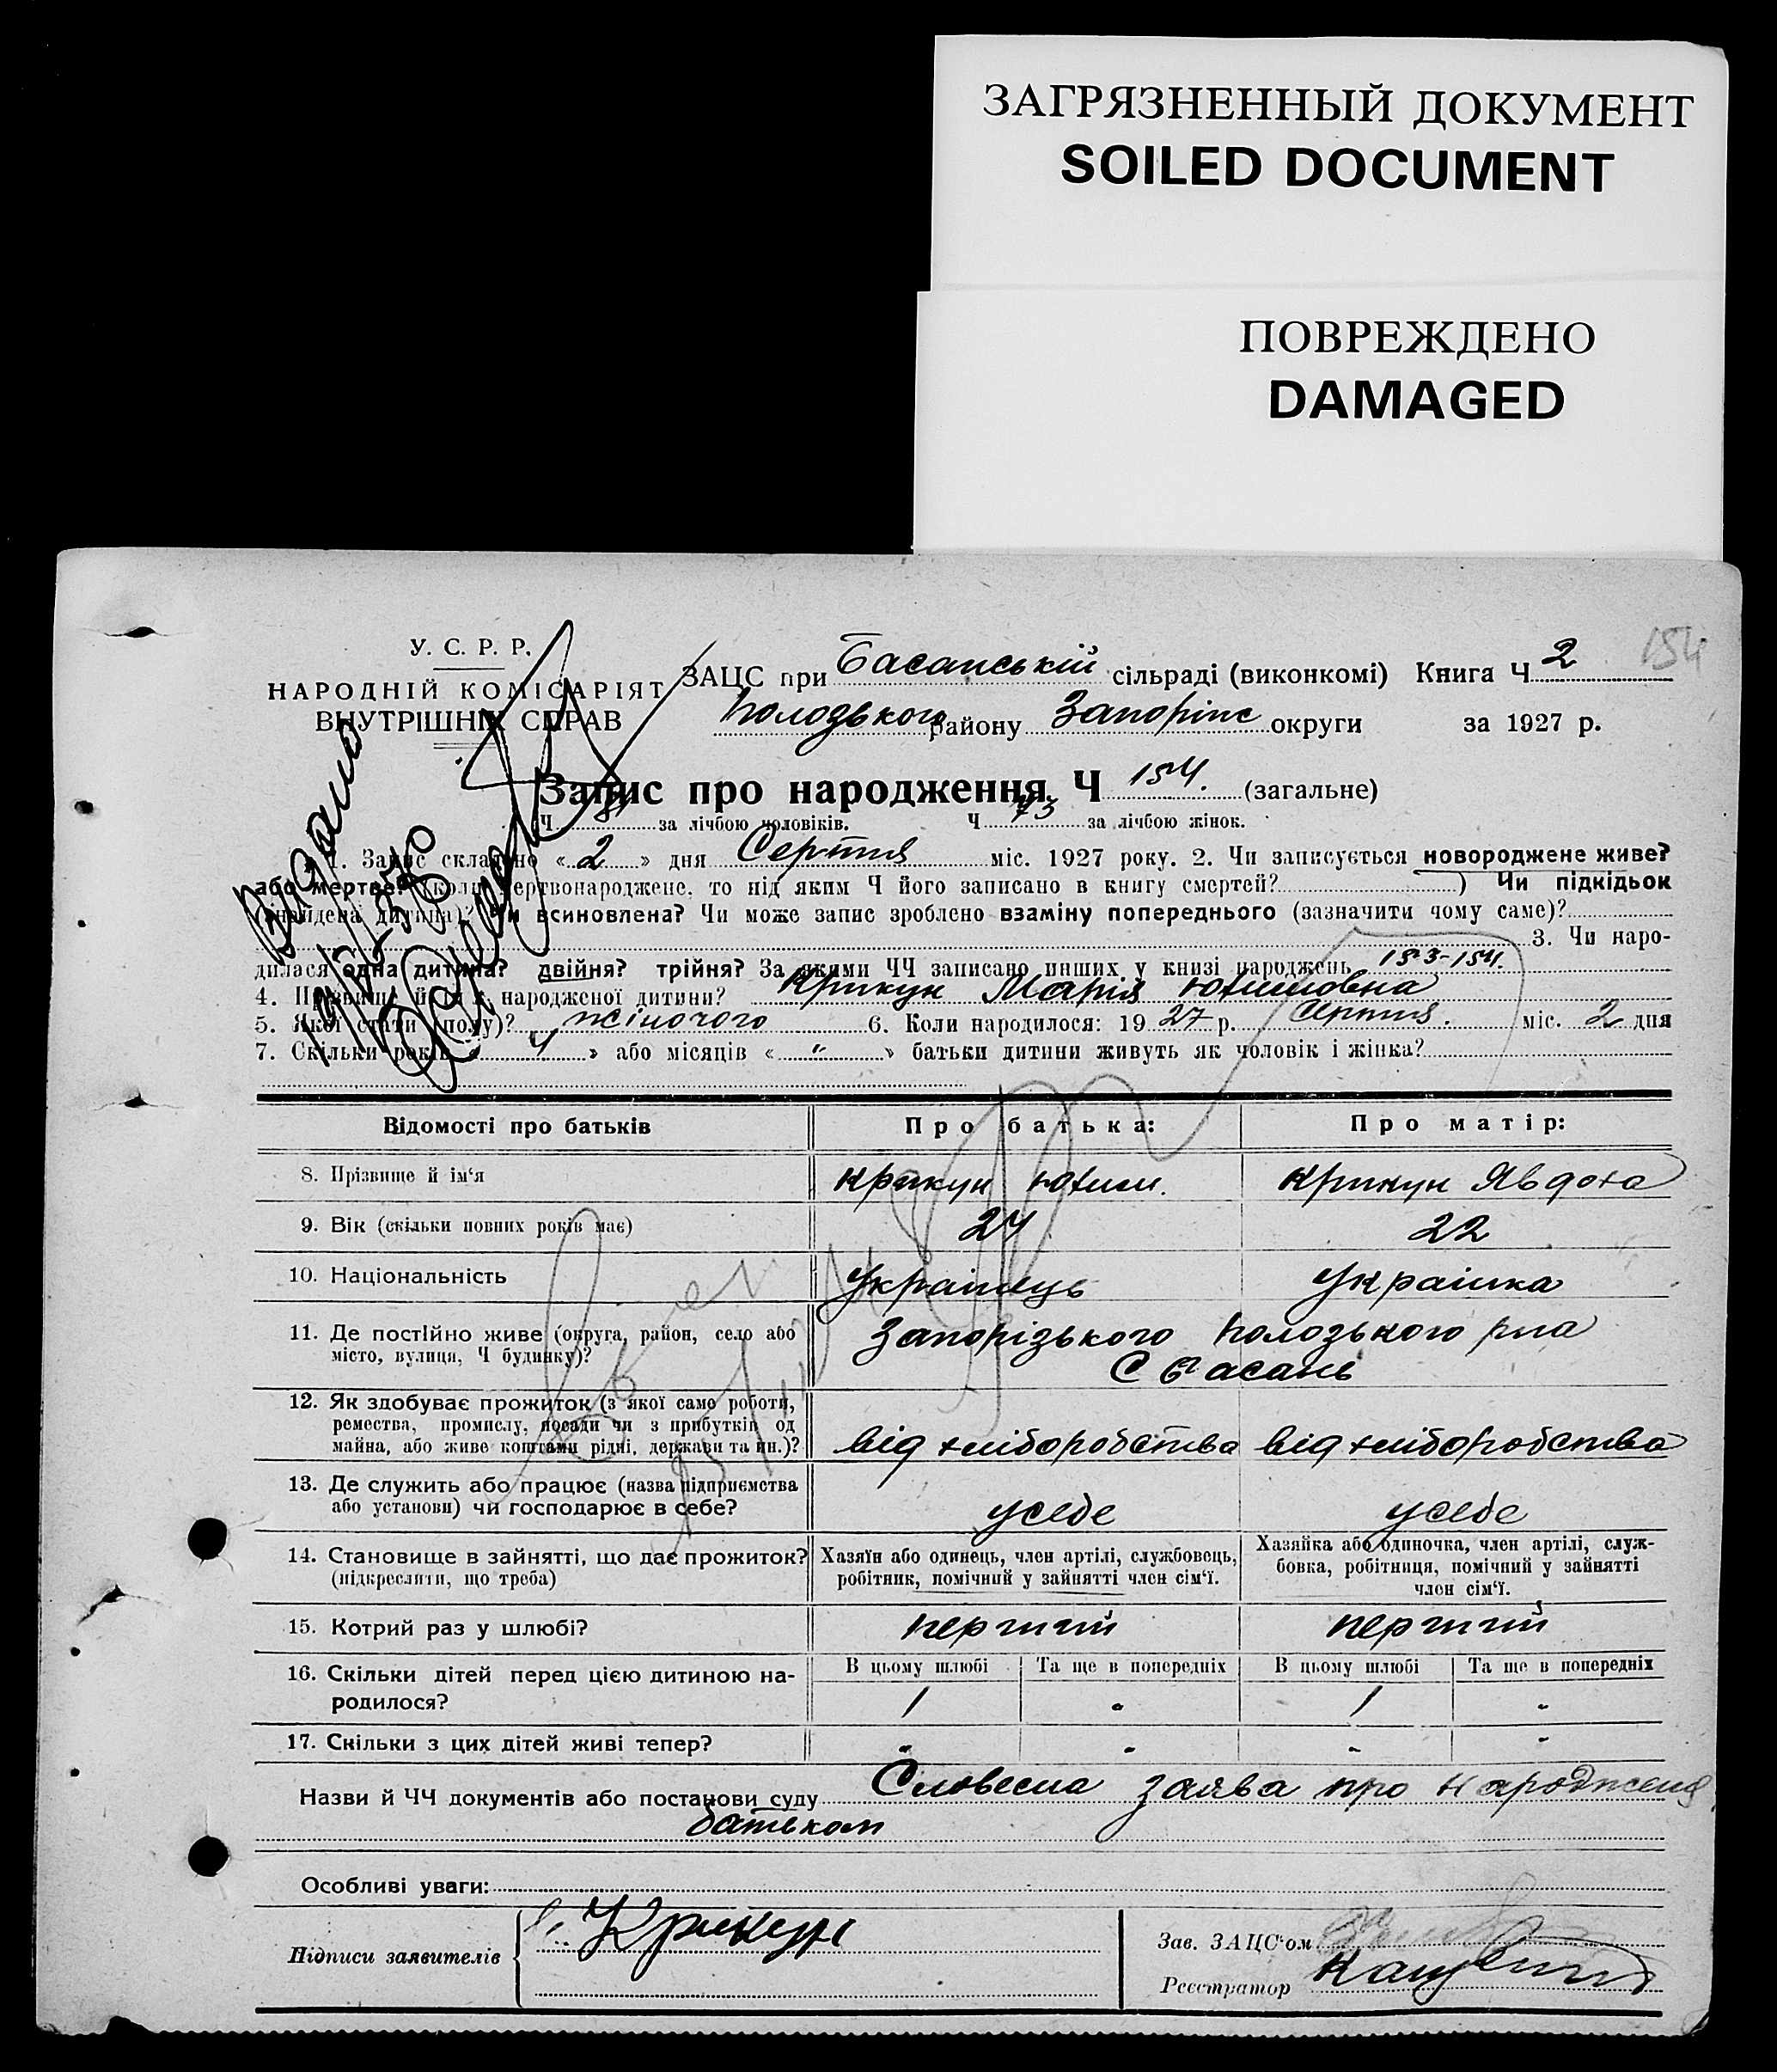 ЗАГРЯЗНЕННЫЙ ДОКУМЕНТ
SOILED DOCUMENT
ПОВРЕЖДЕНО
DAMAGED
154
У. С. Р. Р.
НАРОДНІЙ КОМІСАРІЯТ
ВНУТРІШНІХ СПРАВ
ЗАЦС при Басанській сільраді (виконкомі) Книга Ч 2
Пологького району Запоріж округи за 1927 р.
Запис про народження Ч 154. (загальне)
Ч 81 за лічбою чоловіків. Ч 73 за лічбою жінок.
Видано
1. Запис складено «2» дня Серпня міс. 1927 року. 2. Чи записується новороджене живе?
або мертве? (коли мертвонароджене, то під яким Ч його записано в книгу смертей? ) Чи підкідьок
(знайдена дитина)? Чи всиновлена? Чи може запис зроблено взаміну попереднього (зазначити чому саме)?
3. Чи наро-
дилася одна дитина? двійня? трійня? За якими ЧЧ записано инших у книзі народжень 153-154.
4. Прізвище й ім'я народженої дитини? Крикун Марія Юхимовна
5. Якої стати (полу)? жіночого 6. Коли народилося: 1927 р. Серпня. міс. 2 дня
7. Скільки років «4» або місяців «"» батьки дитини живуть як чоловік і жінка?
Відомості про батьків Про батька: Про матір:
8. Прізвище й ім'я Крикун Юхим. Крикун Явдоха
9. Вік (скільки повних років має) 24 22
10. Національність Українець Українка
11. Де постійно живе (округа, район, село або Запорізького Пологького р-на
місто, вулиця, Ч будинку)? С Басань
12. Як здобуває прожиток (з якої само роботи,
ремества, промислу, посади чи з прибутків од
майна, або живе коштами рідні, держави та ин.)? від хліборобства від хліборобства
13. Де служить або працює (назва підприємства
або установи) чи господарює в себе? у себе у себе
14. Становище в зайнятті, що дає прожиток? Хазяїн або одинець, член артілі, службовець, Хазяйка або одиночка, член артілі, служ-
(підкреслити, що треба) робітник, помічний у зайнятті член сім'ї. бовка, робітниця, помічний у зайнятті
член сім'ї.
15. Котрий раз у шлюбі? перший перший
16. Скільки дітей перед цією дитиною на- В цьому шлюбі Та ще в попередніх В цьому шлюбі Та ще в попередніх
родилося? 1 - 1 -
17. Скільки з цих дітей живі тепер? - - - -
Назви й ЧЧ документів або постанови суду Словесна заява про народження
батьком
Особливі уваги:
Підписи заявителів Крикун
Зав. ЗАЦС'ом
Реєстратор